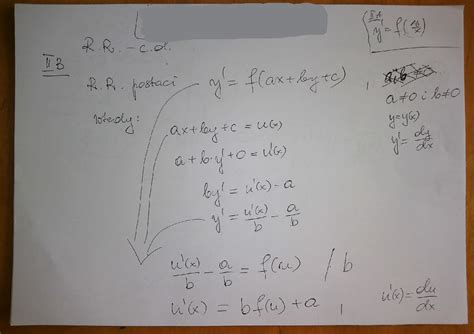 II A
y' = f(y/x)
R.R. - c.d.
II 3
R.R. postaci y' = f(ax+by+c)
a≠0 i b≠0
y=y(x)
y' = dy/dx
wtedy:
ax+by+c = u(x)
a+b·y'+0 = u'(x)
by' = u'(x) - a
y' = u'(x)/b - a/b
u'(x)/b - a/b = f(u) / b
u'(x) = bf(u)+a
u'(x) = du/dx